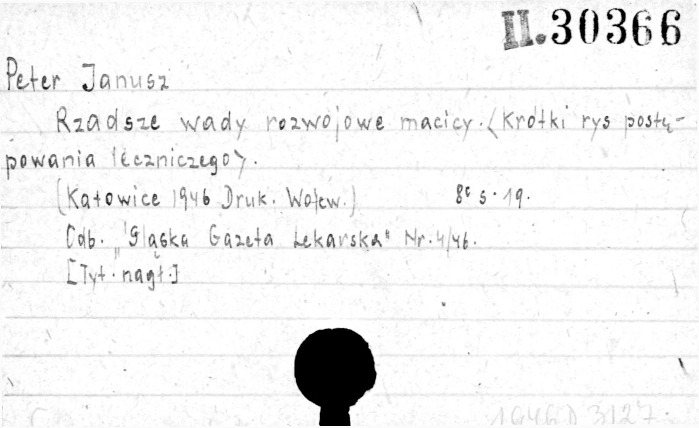 II.30366
Peter Janusz
Rzadsze wady rozwojowe macicy. <Krótki rys postę-
powania leczniczego>.
(Katowice 1946 Druk. Wojew.) 8° s. 19.
Odb. „Śląska Gazeta Lekarska" Nr. 4/46.
[Tyt. nagł.]
1946 D 3127.